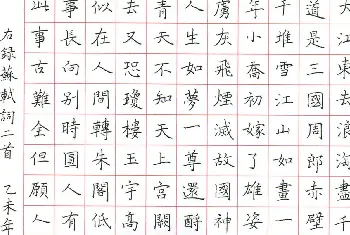 大江東去浪淘盡千
道是三國周郎赤壁
千堆雪江山如畫一
年小喬初嫁了雄姿
虜灰飛煙滅故國神
人生如夢一尊還酹
青天不知天上宮闕
去又恐瓊樓玉宇高
似在人間轉朱閣低
事長向別時圓人有
此事古難全但願人
右錄蘇軾詞二首 乙未年